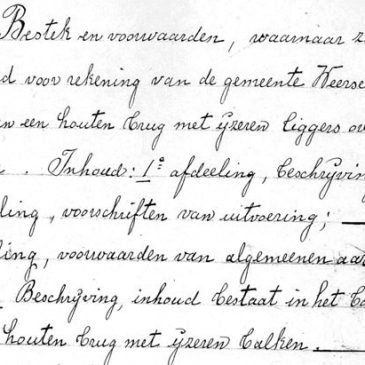 Bestek en voorwaarden, waarnaar z
d voor rekening van de gemeente Weerse
n een houten brug met ijzeren liggers ov
. Inhoud: 1e afdeeling, beschrijvin
ling, voorschriften van uitvoering;
ling, voorwaarden van algemeenen aar
Beschrijving, inhoud bestaat in het b
houten brug met ijzeren balken.